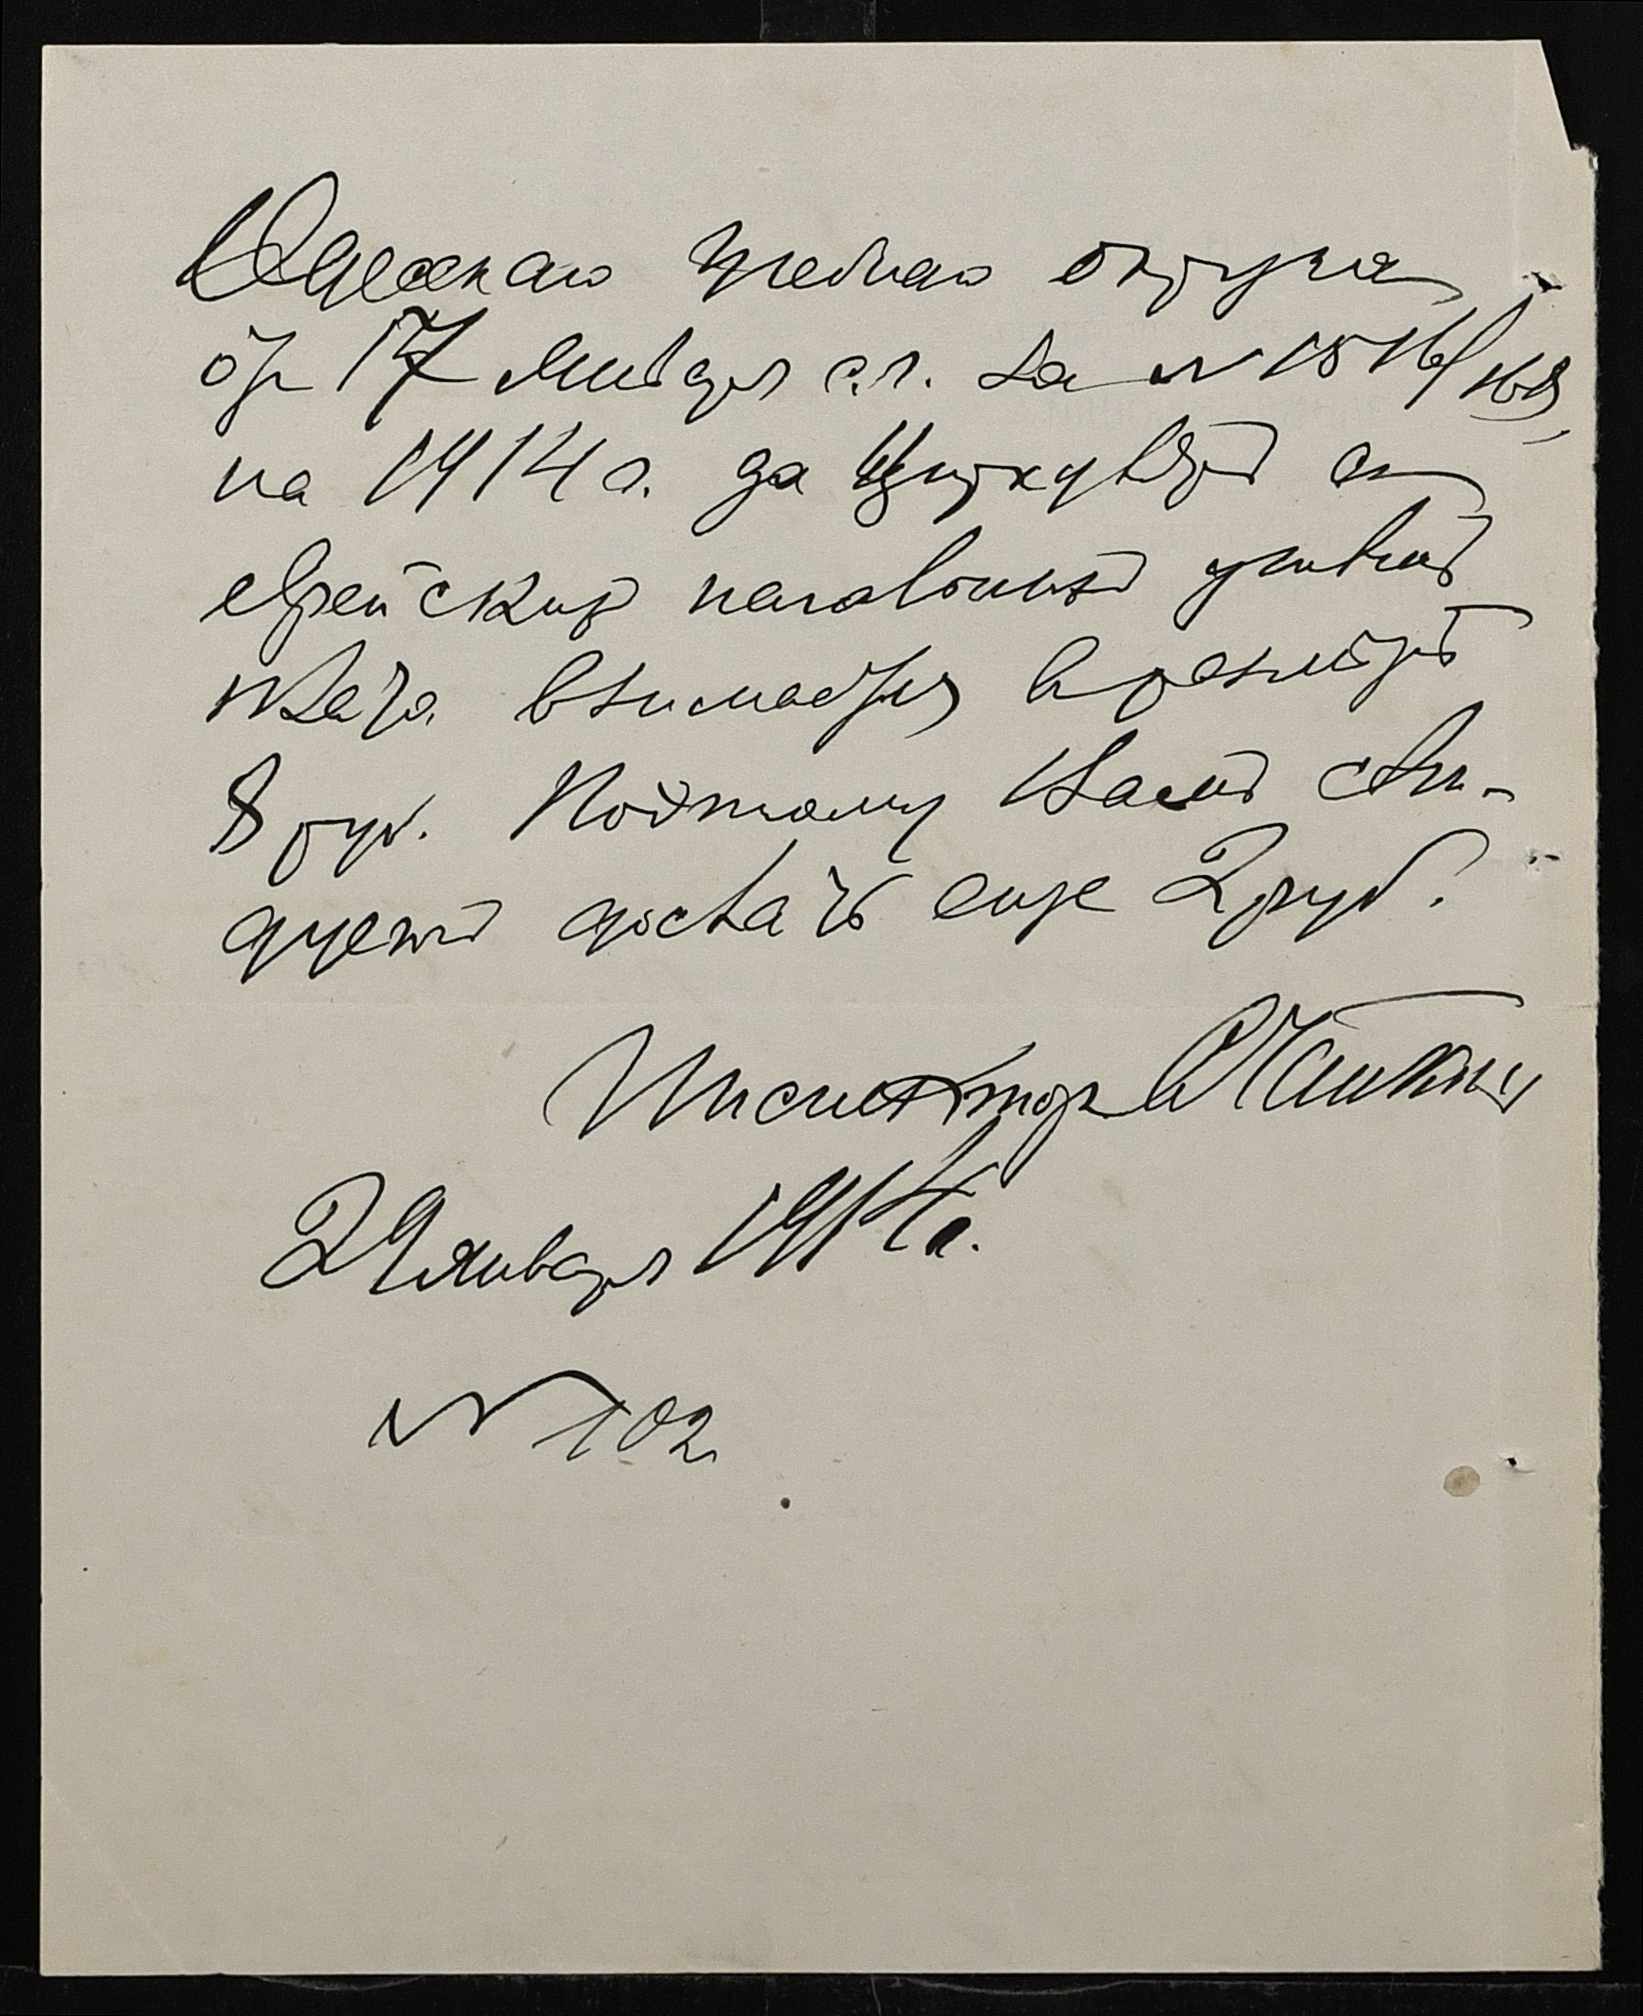 Одесскаго Учебнаго округа
от 17 Января с.г. за № 1516/168,
на 1914 г. за Циркуляръ съ
еврейскихъ начальныхъ училищъ
плата взимается в размѣрѣ
8 руб. Поэтому Вамъ слѣ-
дуетъ дослать еще 2 руб.
Инспектор
29 января 1914 г.
№ 102